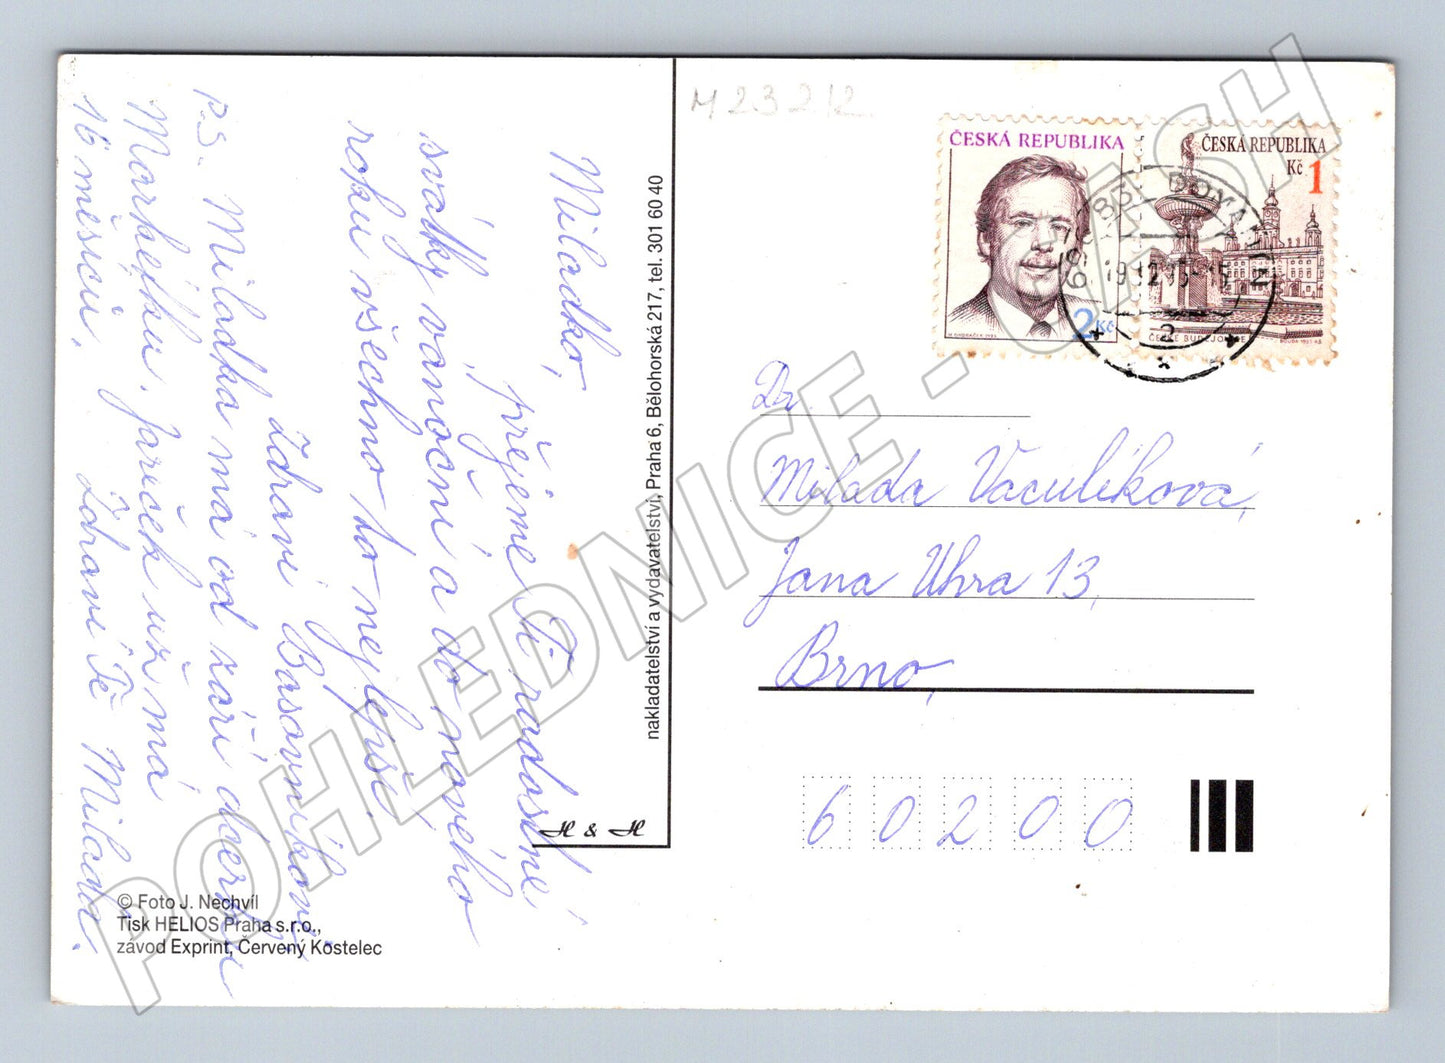 M 232/2
ČESKÁ REPUBLIKA
2 Kč
ČESKÁ REPUBLIKA
Kč 1
ČESKÉ BUDĚJOVICE
DOMANÍN
19.12.95-15
2
Miladko,
přejeme Ti radostné
svátky vánoční a do nového
roku všechno to nejlepší
zdraví Basovníkovi
P.S. Miladka má od září dceru
Markétku. Jaríček už má
16 měsíců. Zdraví Tě Milada.
nakladatelství a vydavatelství, Praha 6, Bělohorská 217, tel. 301 60 40
H & H
© Foto J. Nechvíl
Tisk HELIOS Praha s.r.o.,
závod Exprint, Červený Kostelec
Milada Vaculíková,
Jana Uhra 13,
Brno,
60200
POHLEDNICE - CASH